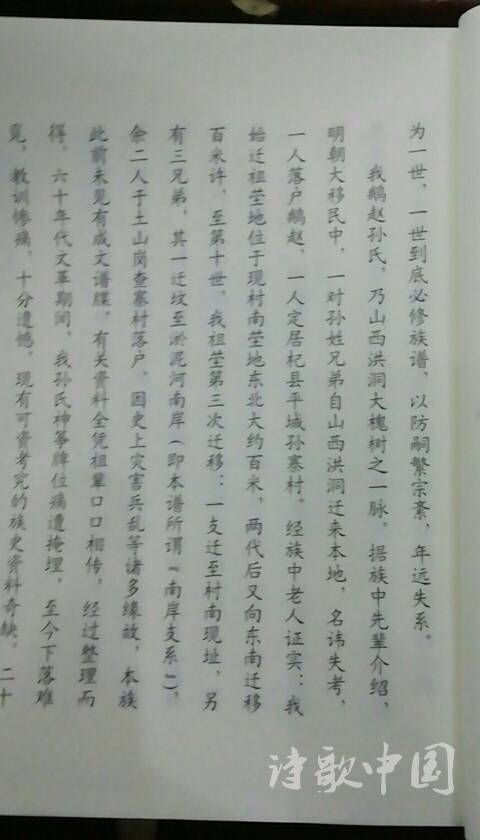 为一世，一世到底必修族谱，以防嗣繁宗紊，年远失系。
我鹅赵孙氏，乃山西洪洞大槐树之一脉。据族中先辈介绍，
明朝大移民中，一对孙姓兄弟自山西洪洞迁来本地，名讳失考，
一人落户鹅赵，一人定居杞县平城孙寨村。经族中老人证实：我
始迁祖茔地位于现村南茔地东北大约百米，两代后又向东南迁移
百米许，至第十世，我祖茔第三次迁移：一支迁至村南现址，另
有三兄弟，其一迁坟至淤泥河南岸（即本谱所谓“南岸支系”），
余二人于土山岗查寨村落户。因史上灾害兵乱等诸多缘故，本族
此前未见有成文谱牒，有关资料全凭祖辈口口相传，经过整理而
得。六十年代文革期间，我孙氏神筝牌位痛遭掩埋，至今下落难
觅，教训惨痛，十分遗憾。现有可资考究的族史资料奇缺。二十
诗歌中国